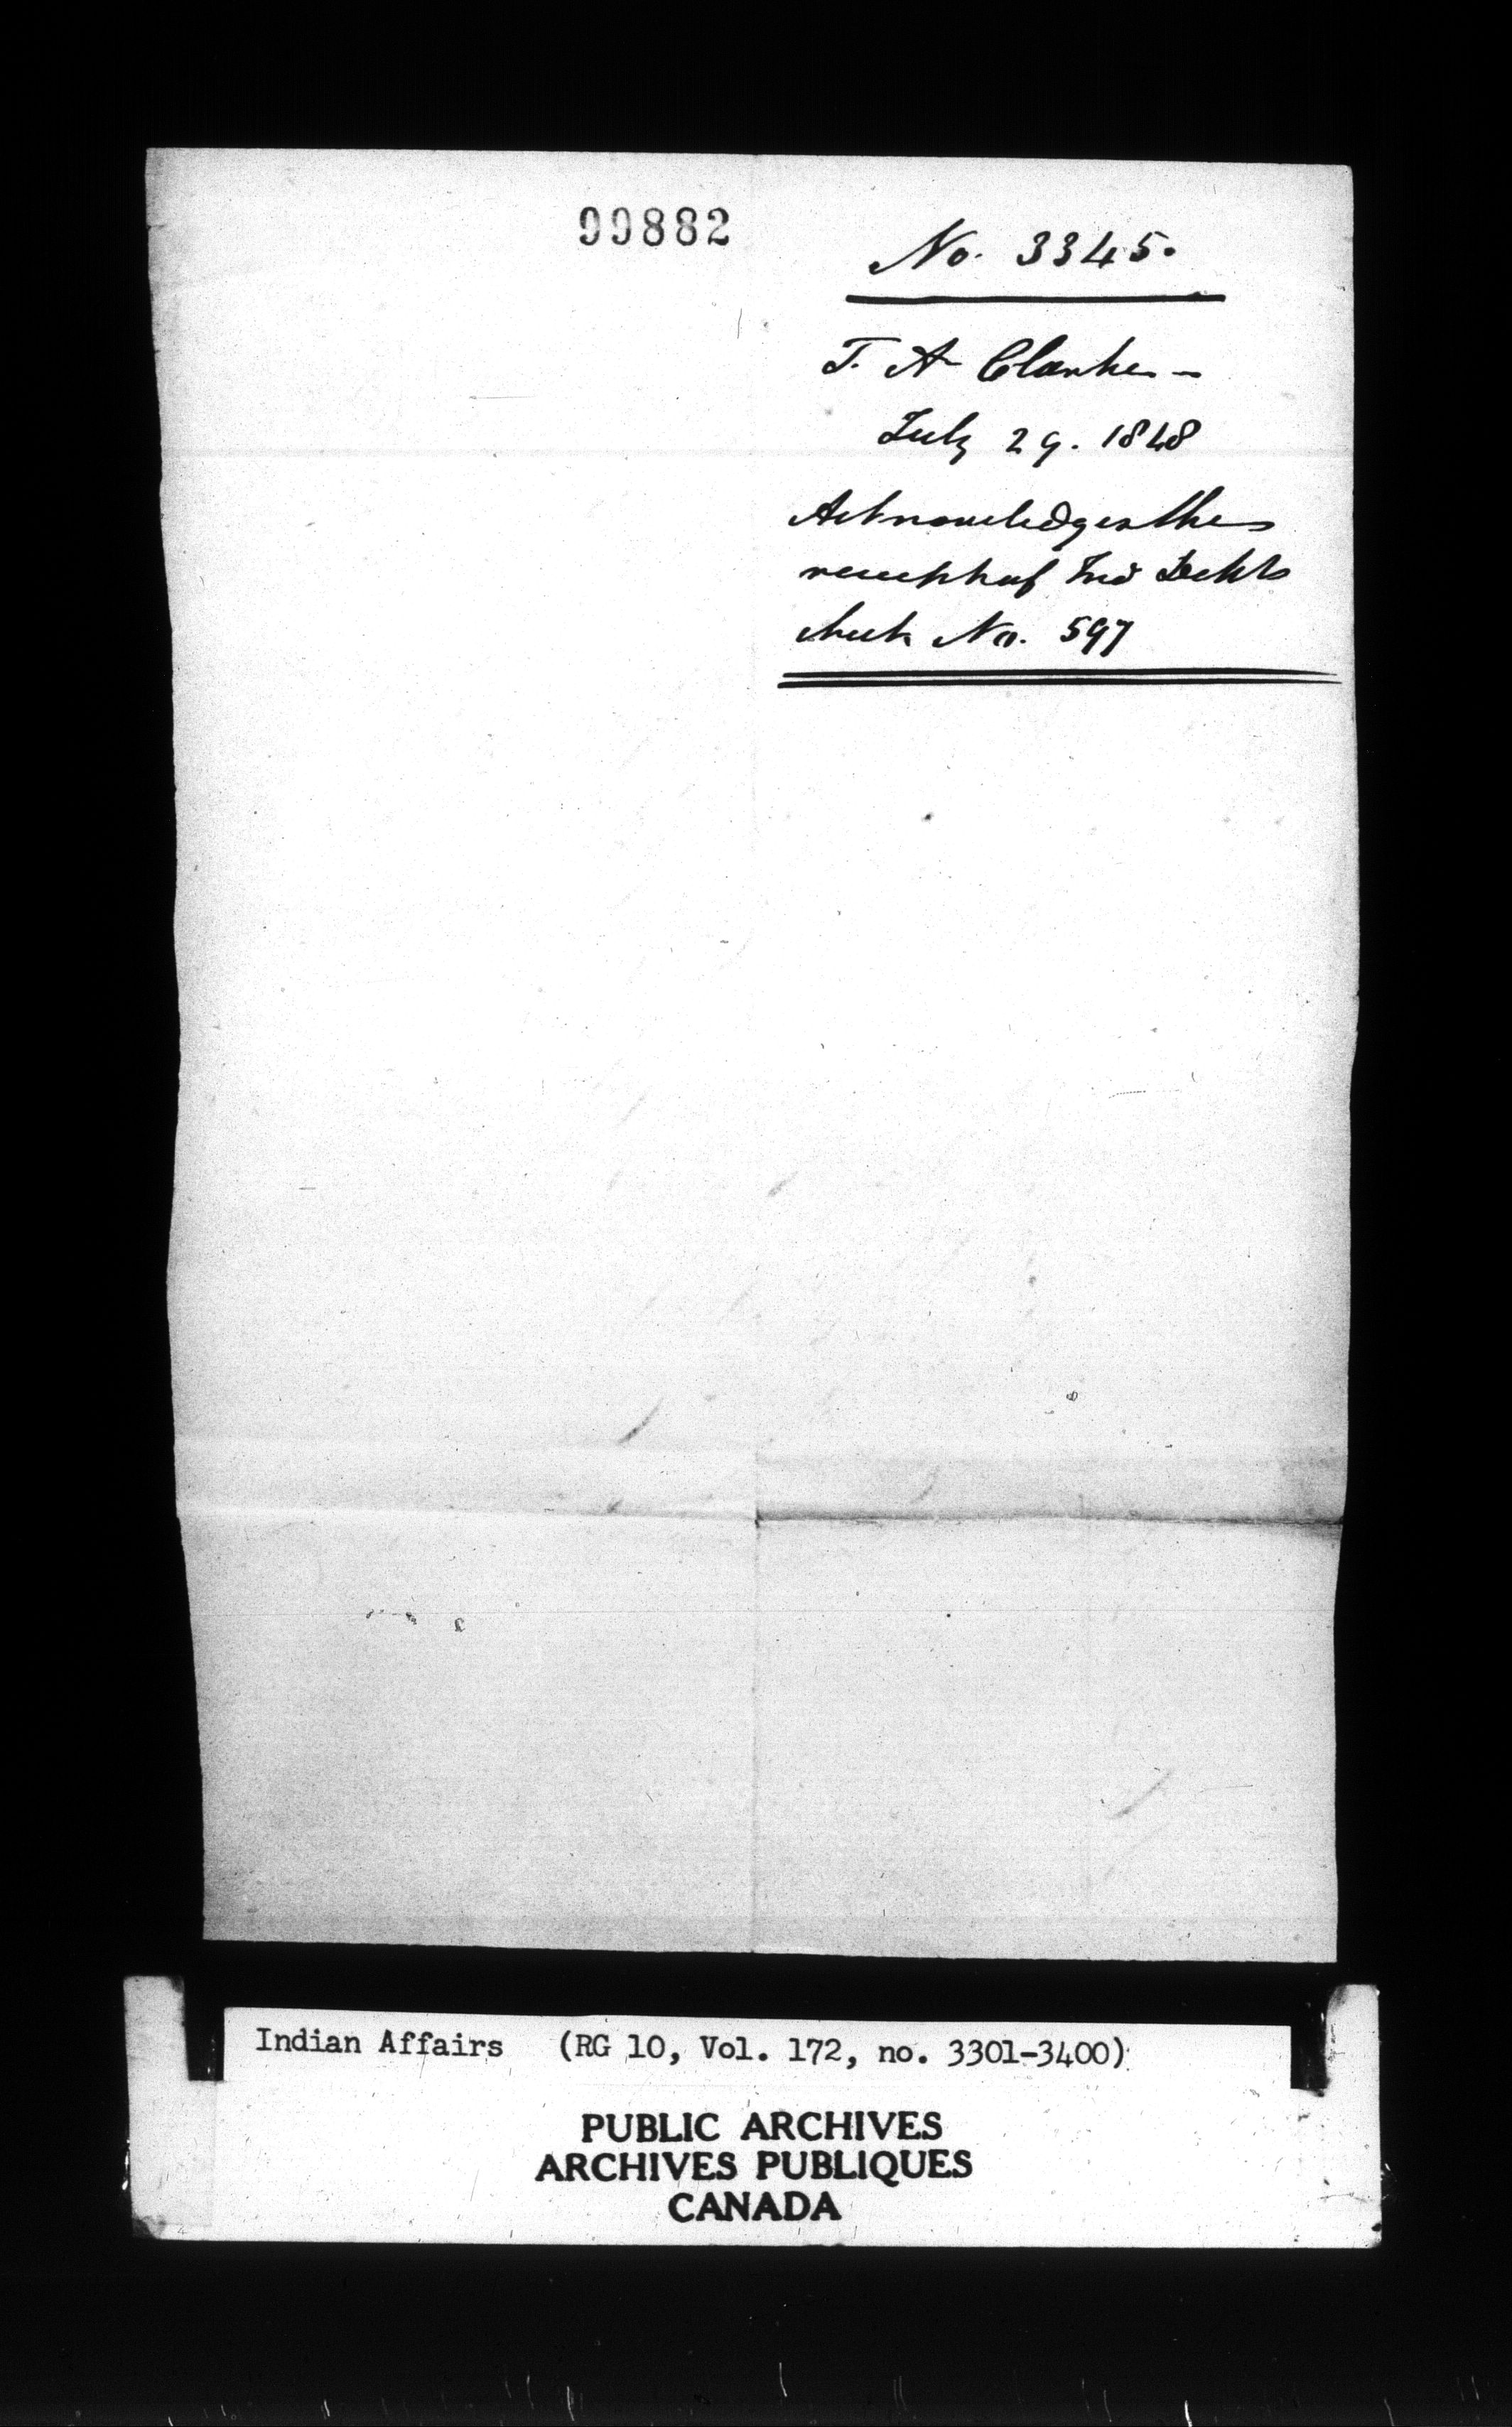 99882
No. 3345.
T. A Clarke -
July 29. 1848
Acknowledges the
receipt of Ind Debts
check No. 597
Indian Affairs (RG 10, Vol. 172, no. 3301-3400)
PUBLIC ARCHIVES
ARCHIVES PUBLIQUES
CANADA